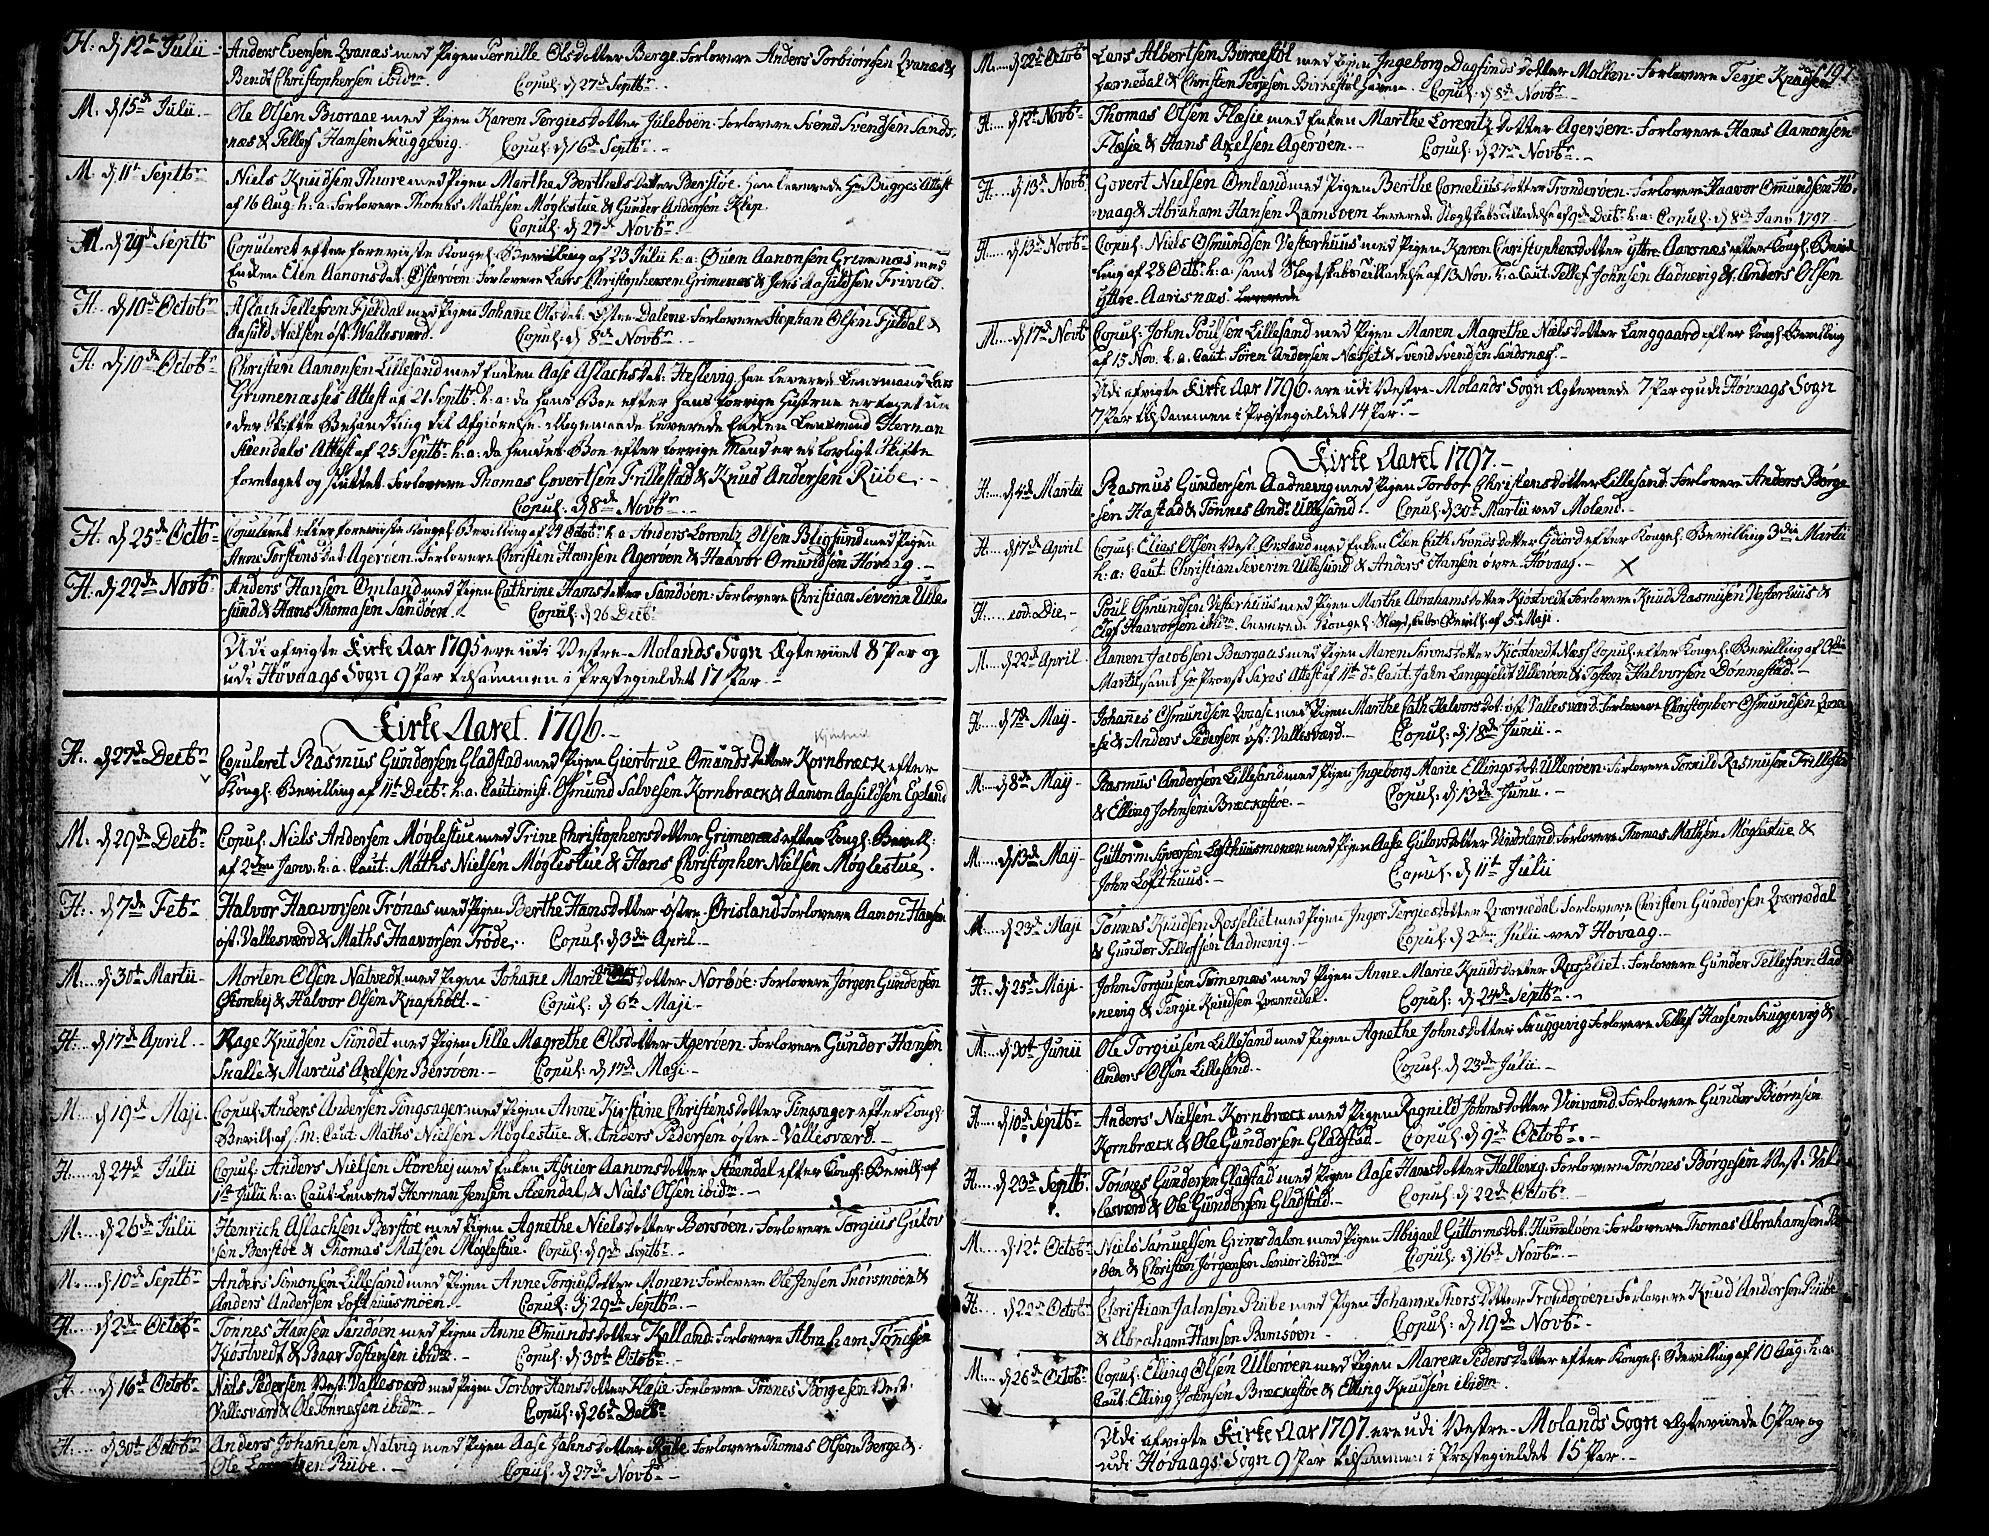 H: d 12te Julii Anders Evensen Qvanæs med Pigen Pernille Olsdotter Berge. Forlovere Anders Torbiørnsen Qvanæs &
Bendt Christophersen ibidm. Copul: d 27de Septbr.
M. d 15de Julii Ole Olsen Bioraae med Pigen Karen Tergiesdotter Juleboen. Forlovere Svend Svendsen Sands-
næs & Tellef Hansen Skuggevig. Copul: d 16de Septbr.
M. d 11te Septbr Niels Knudsen Thvore med Pigen Marthe Berthelsdotter Berstøe. Han leverede Hr Bugges Attest
af 16 Aug. h: a: Forlovere Thomas Mathsen Møglestue & Gunder Andersen Kiep.
Copul: d 27de Novbr.
M. d 29de Septbr Copuleret efter foreviiste Kongel: Bevilling af 23 Julii h: a: Ouen Aanonsen Grimenæs med
Enken Elen Aanonsdot: Østerøen. Forlovere Lars Christophersen Grimenæs & Jens Aasuldsen Frivold.
H: d 10de Octobr Aslach Tellefsen Fjeldal med Pigen Johane Olsdot: Østre Dalene. Forlovere Stephan Olsen Fjeldal &
Aasuld Nielsen øst: Vallesværd. Copul: d 8de Novbr.
H: d 10de Octobr Christen Aanonsen Lillesand med Enken Aase Aslachsdot: Heslevig, han leverede Lensmand Lars
Grimenæsses Attest af 21. Septbr. h: a: da hans Boe efter hans forrige Hustrue er taget un-
der Skifte Behandling til Afgiørelse. Ligemaade leverede Enken Lensmand Herman
Steendals Attest af 25 Septbr. h: a: da hendes Boe efter forrige Mand er et lovligt Skifte
foretaget og sluttet. Forlovere Thomas Govertsen Trillestad & Knud Andersen Ribe.
Copul: d 8de Novbr.
H: d 25de Octbr Copuleret efter foreviiste Kongel: Bevilling af 21 Octobr. h: a: Anders Lorentz Olsen Bligsund med Pigen
Anne Torstensdot: Agerøen. Forlovere Christen Hansen Agerøen & Haavor Omundsen Høvaag.
H: d 22de Novbr Anders Hansen Omland med Pigen Cathrine Hansdotter Sandøen. Forlovere Christian Severin Ulle-
sund & Hans Thomasen Sandøen. Copul: d 26 Decbr.
Udi afvigte Kirke Aar 1795 ere udi Vestre-Molands Sogn Ægteviiet 8 Par og
udi Høvaags Sogn 9 Par tilsammen i Præstegieldet 17 Par.
Kirke Aaret 1796.
H: d 27de Decbr Copuleret Rasmus Gundersen Gladstad med Pigen Giertrue Omundsdotter Kornbræck efter
Kongel: Bevilling af 11te Decbr. h: a: Cautionist. Osmund Salvesen Kornbræck & Aanon Aasuldsen Egeland
M. d 29de Decbr Copul: Niels Andersen Møglestue med Trine Christophersdotter Grimenæs efter Kongel: Bevill:
af 2den Janv. h: a: Caut: Maths Nielsen Møglestue & Hans Christopher Nielsen Møglestue.
H: d 7de Febr Halvor Haavorsen Trønæs med Pigen Berthe Hansdotter østre Ørisland. Forlovere Aanon Hansen
øst: Vallesværd & Maths Haavorsen Trøde. Copul: d 3die April.
M. d 30te Martii Morten Olsen Natvedt med Pigen Johane Marie dotter Norbøe. Forlovere Jørgen Gundersen
Storehej & Halvor Olsen Knapholt. Copul: d 6te Maji.
H: d 17de April Rage Knudsen Sundet med Pigen Sille Magrethe Olsdotter Agerøen. Forlovere Gunder Hansen
Skalle & Marcus Axelsen Bersøen. Copul: d 17de Maji.
M. d 19de Maji. Copul: Anders Andersen Tingsager med Pigen Anne Kirstine Christensdotter Tingsager efter Kongl:
Bevill: af s: m: Caut: Maths Nielsen Møglestue & Anders Pedersen østre-Vallesværd.
H: d 24de Julii Copul: Anders Nielsen Storehej med Enken Assier Aanonsdotter Steendal efter Kongel: Bevill: af
1te Julii h: a: Caut: Lensmd Herman Jensen Steendal, & Niels Olsen ibidm.
M: d 26de Julii Henrich Aslachsen Berstøe med Pigen Agnethe Nielsdotter Borsøen. Forlovere Torgius Gulov-
sen Berstøe & Thomas Matsen Møglestue. Copul: d 9de Septbr.
M. d 10de Septbr Anders Simonsen Lillesand med Pigen Anne Torgusdotter Monen. Forlovere Ole Jensen Snørsmøen &
Anders Andersen Lofthuusmoen. Copul: d 29de Septbr.
H: d 2den Octobr Tonnes Hansen Sandøen med Pigen Anne Omundsdotter Kalland. Forlovere Abraham Tønesen
Kiøstvedt & Baar Tostensen ibidm. Copul: d 30te Octobr.
H: d 16de Octobr Niels Pedersen Vest: Vallesværd med Pigen Torbor Hansdotter Flæsie. Forlovere Tønnes Børgesen Vest:
Vallesværd & Ole Tønnessen ibidm. Copul: d 26de Decbr.
H: d 30te Octobr Anders Johannesen Natvig med Pigen Aase Jahnsdotter Ribe. Forlovere Thomas Olsen Berge &
Ole Ribe. Copul: d 27de Novbr.
M. d 22de Octobr Lars Albertsen Birkestøl med Pigen Ingeborg Dagfindsdotter Molben. Forlovere Terje Knudsen 192
Lærnedal & Christen Terjesen Birkestøl Copul: d 8de Novbr.
H. d 12te Novbr. Thomas Olsen Flæsie med Enken Marthe Lorentzdotter Agerøen. Forlovere Hans Aanonsen
Flæsie & Hans Axelsen Agerøen. Copul: d 27de Novbr.
H. d 13de Novbr Govert Nielsen Omland med Pigen Berthe Corneliusdotter Trondøen. Forlovere Haavor Omundsen Hø-
vaag & Abraham Hansen Ramsøen leverede Slegtskabs tilladelse af 9de Decbr. h: a: Copul: d 8de Janv 1797.
H. d 13de Novbr Copul: Niels Osmundsen Vesterhuus med Pigen Karen Christophersdotter yttre Aarsnæs efter Kongl: Bevil-
ling af 28 Octb: h: a: samt Slegtskabs tilladelse af 13 Nov. h: a: Caut: Tellef Johnsen Aadnevig & Anders Olsen
yttre Aarisnæs. leverede
M. d 17de Novbr Copul: John Poulsen Lillesand med Pigen Maren Magrethe Nielsdotter Langgaard efter Kongl: Bevilling
af 15 Nov. h: a: Caut: Søren Andersen Næsset & Svend Svendsen Sandsnæs.
Udi afvigte Kirke Aar 1796 ere udi Vestre-Molands Sogn Ægteviede 7 Par og udi Høvaags Sogn
7 Par tilsammen i Præstegieldet 14 Par.
Kirke Aaret 1797.
H: d 4de Martii Rasmus Gundersen Aadnevig med Pigen Torbor Christensdotter Lillesand. Forlovere Anders Børge-
sen Hæstad & Tønnes And: Ullesund. Copul: d 30te Martii ved Moland.
H: d 17de April Copul: Elias Olsen Vest: Ørsland med Enken Elen Cath: Svendsdotter Gaiord efter Kongel: Bevilling 3die Martii
h: a: Caut: Christian Severin Ullesund & Anders Hansen øvre Høvaag. X
H: eod: Die. Poul Osmundsen Vesterhuus med Pigen Marthe Abrahamsdotter Kiøstvedt. Forlovere Knud Rasmusen Vesterhuus &
Olaf Haavorsen ibidm. leverede Kongel: Slegtskabs Bevill: af 5te Maji.
M. d 22de April Aanen Jacobsen Buraas med Pigen Maren Simonsdotter Kiøstvedt Næs, Copul: efter Kongel: Bevilling af
Martii, samt Hr Provst Saxes Attest af 11te d: Caut: Jahn Langefeldt Ullerøen & Tosten Halvorsen Dønnestad.
H: d 7de May Johanes Osmundsen Qvaase med Pigen Marthe Cath: Halvorsdot: øst Vallesværd. Forlovere Christopher Osmundsen Qvaa-
se & Anders Pedersen øst: Vallesværd. Copul: d 18de Junii.
M: d 8de May Rasmus Andersen Lillesand med Pigen Ingeborg Marie Ellingsdot: Ullerøen. Forlovere Torkild Rasmusen Trillestad
& Elling Johnsen Bræckestøe. Copul: d 13de Junii.
M. d 13de May Guttorm Siversen Lofthuusmonen med Pigen Aase Gulovsdotter Vindsland. Forlovere Thomas Mathsen Møglestue &
John Lofthuus. Copul: d 11te Julii
M. d 23de Maji Tønnes Knudsen Rosseliet med Pigen Inger Tergiesdotter Qværnedal. Forlovere Christen Gundersen Qværnedal
& Gunder Tellefsen Aadnevig. Copul: d 2den Julii ved Høvaag.
H. d 25de Maji John Torguisen Tømenæs med Pigen Anne Marie Knudsdotter Rosseliet. Forlovere Gunder Tellefsen Aad-
nevig & Tergie Knudsen Qværnedal. Copul: d 24de Septbr.
M. d 30te Junii Ole Torgiusen Lillesand med Pigen Agnethe Johnsdotter Skuggevig. Forlovere Tellef Hansen Skuggevig &
Anders Olsen Lillesand. Copul: d 23de Julii.
H. d 10de Septbr Anders Nielsen Kornbræck med Pigen Ragnild Johnsdotter Vievand. Forlovere Gunder Biørnsen
Kornbræck & Ole Gundersen Gladstad. Copul: d 9de Octobr.
H. d 23de Septbr. Tønnes Gundersen Gladstad med Pigen Aase Hansdotter Hellevig. Forlovere Tønnes Børgesen Vest: Val-
lesværd & Ole Gundersen Gladstad. Copul: d 22de Octobr.
M. d 12te Octobr Niels Samuelsen Grimsdalen med Pigen Abigael Guttormsdot: Humleløen. Forlovere Thomas Abrahamsen
& Christen Jørgensen Senior ibidm. Copul: d 16de Novbr.
H. d 22de Octobr Christian Jalonsen Ribe med Pigen Johanne Thorsdotter Trondøen. Forlovere Knud Andersen Ribe
& Abraham Hansen Ramsøen. Copul: d 19de Novbr.
M. d 26de Octobr. Copul: Elling Olsen Ullerøen med Pigen Maren Pedersdotter efter Kongel: Bevilling af 10 Aug. h: a:
Caut: Elling Johnsen Bræckestøe & Elling Knudsen ibidm.
Udi afvigte Kirke Aar 1797 ere udi Vestre-Molands Sogn Ægteviede 6 Par og
udi Høvaags Sogn 9 Par tilsammen i Præstegieldet 15 Par.